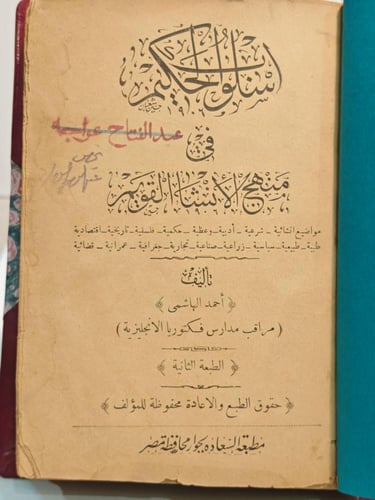 أسلوب الحكيم
عبد الفتاح عزام
في
منهج الإنشاء القويم
مواضيع انشائية - شرعية - أدبية - وعظية - حكمية - فلسفية - تاريخية - اقتصادية
طبية - طبيعية - سياسية - زراعية - صناعية - تجارية - جغرافية - عمرانية - قضائية
تأليف
﴿ أحمد الهاشمى ﴾
( مراقب مدارس فكتوريا الانجليزية )
﴿ الطبعة الثانية ﴾
﴿ حقوق الطبع والاعادة محفوظة للمؤلف ﴾
مطبعة السعادة بجوار محافظة مصر